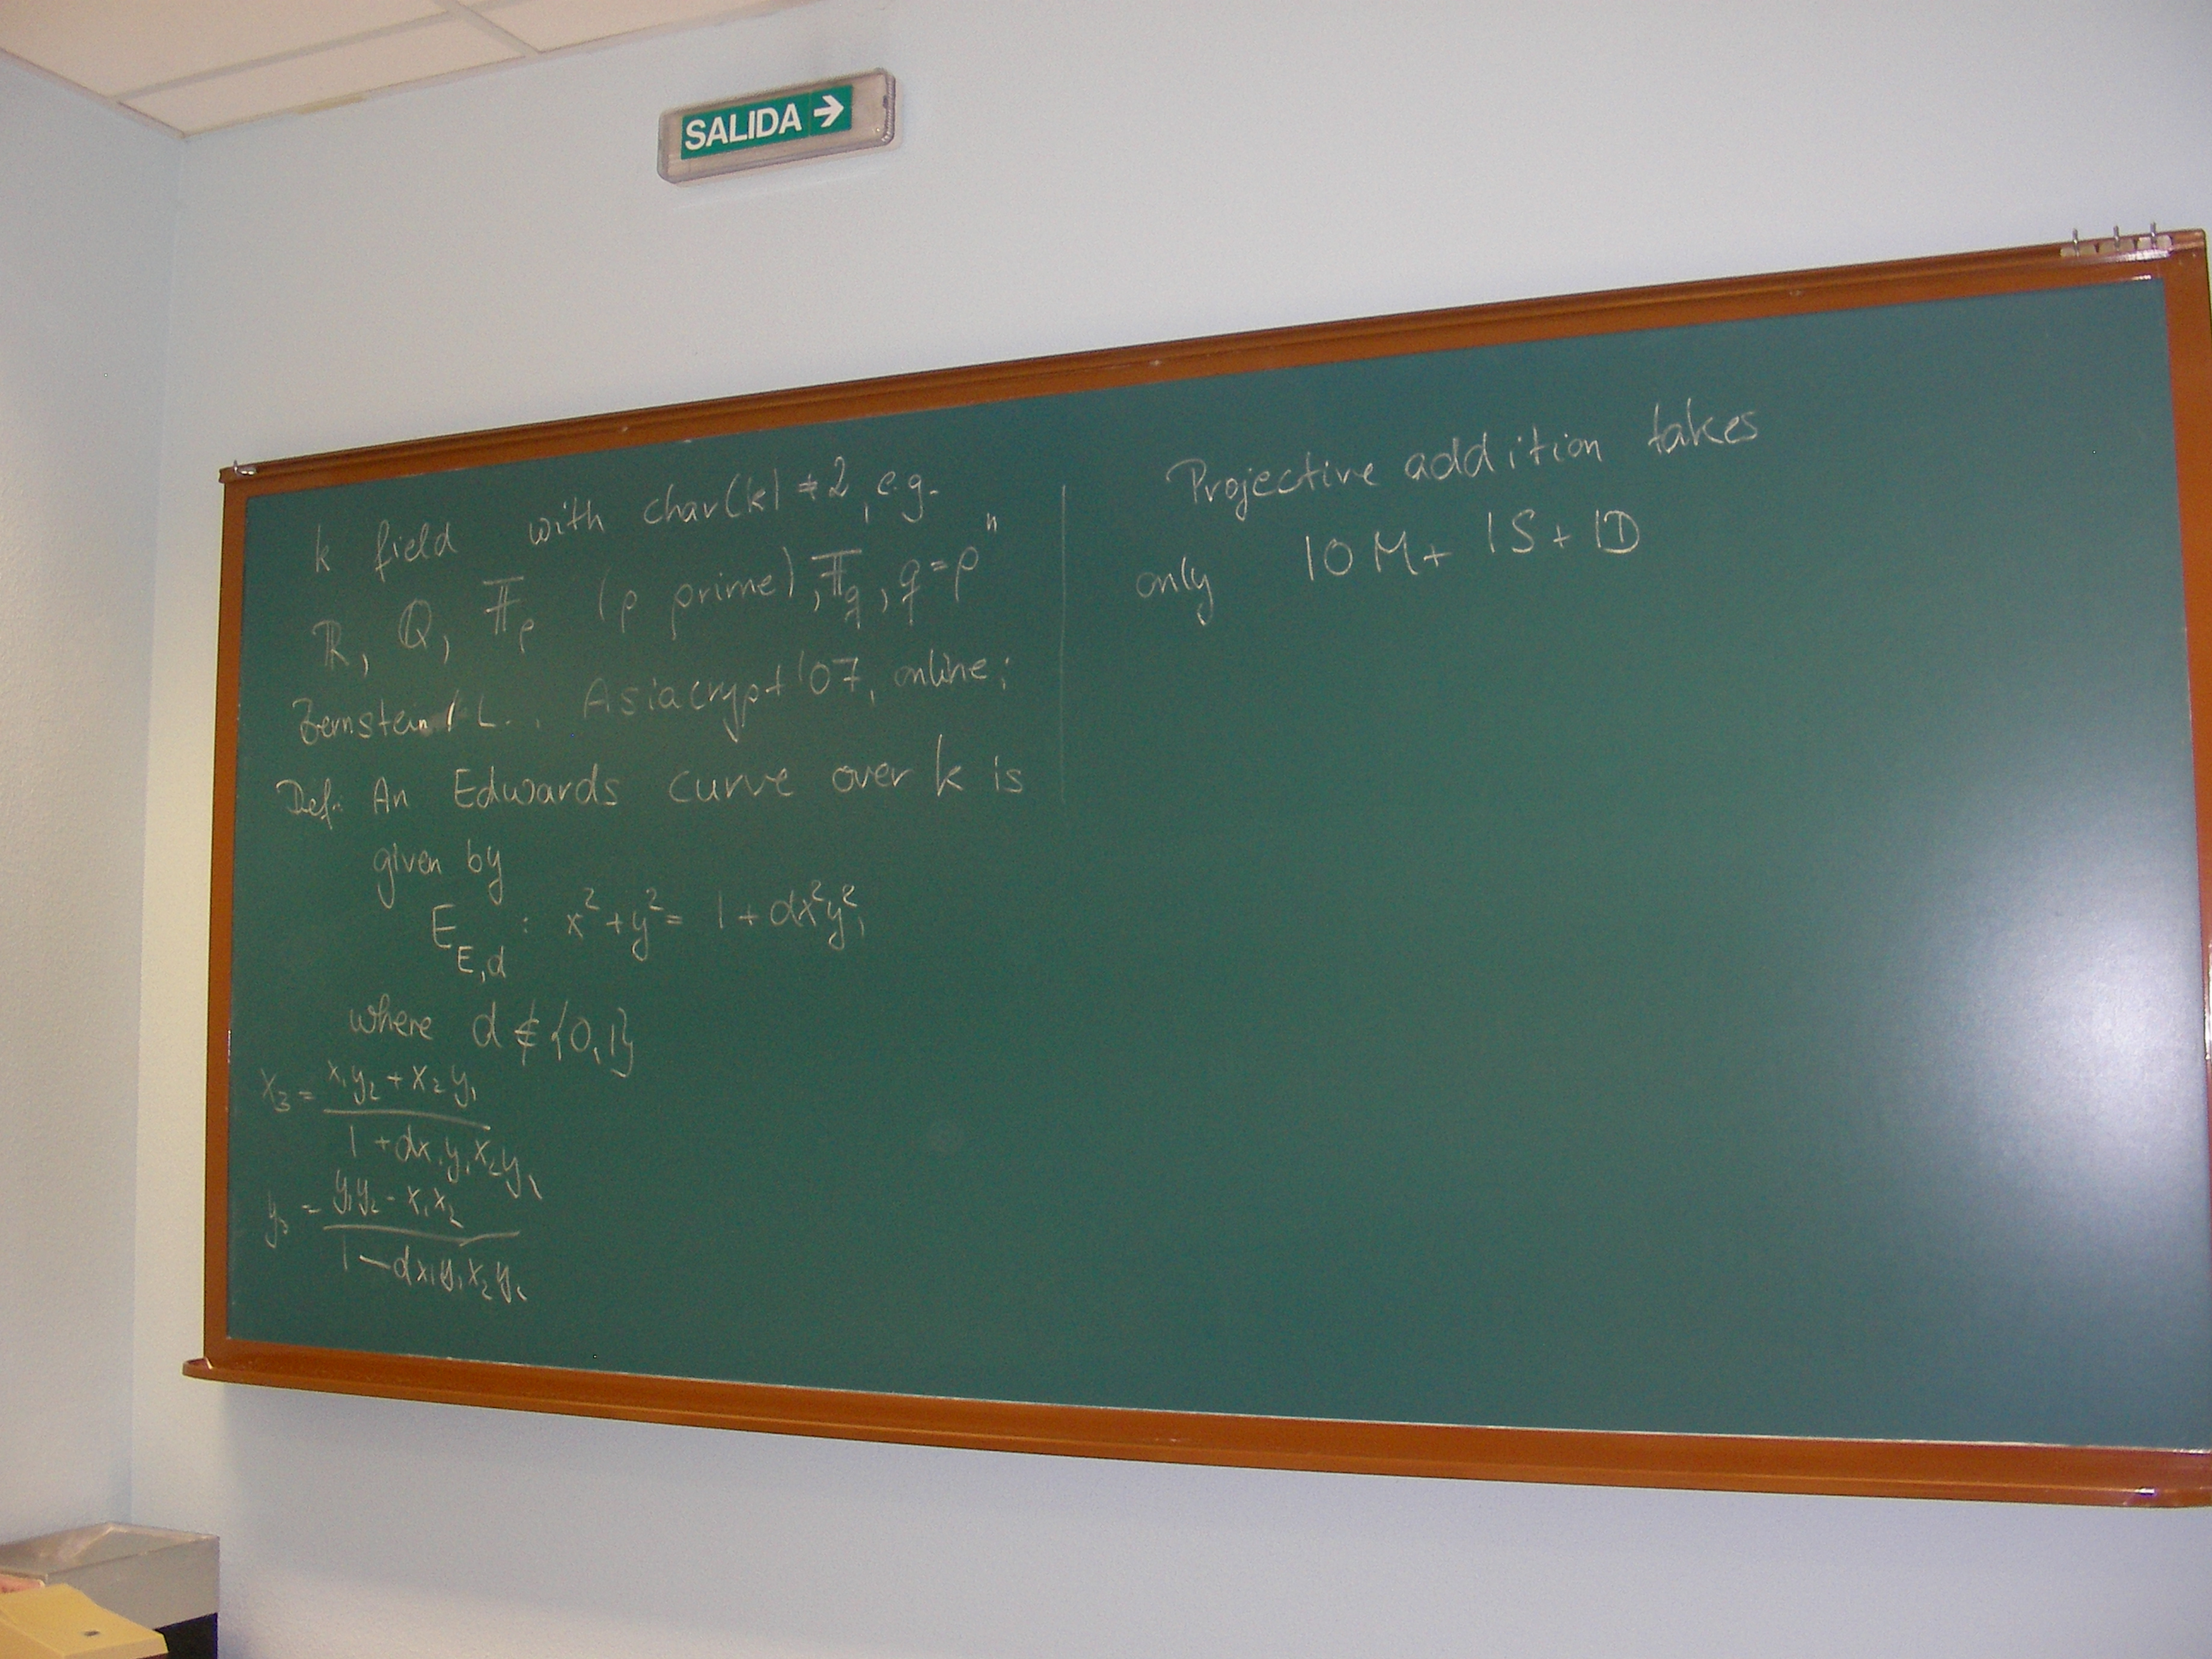 SALIDA →
k field with char(k) ≠ 2, e.g.
ℝ, ℚ, 𝔽_p (p prime), 𝔽_q, q = p^n
Bernstein / L. Asiacrypt '07, online;
Def: An Edwards curve over k is
given by
E_{E,d} : x² + y² = 1 + dx²y²,
where d ∉ {0,1}
x₃ = (x₁y₂ + x₂y₁) / (1 + dx₁y₁x₂y₂)
y₃ = (y₁y₂ - x₁x₂) / (1 - dx₁y₁x₂y₂)
Projective addition takes
only 10M + 1S + 1D